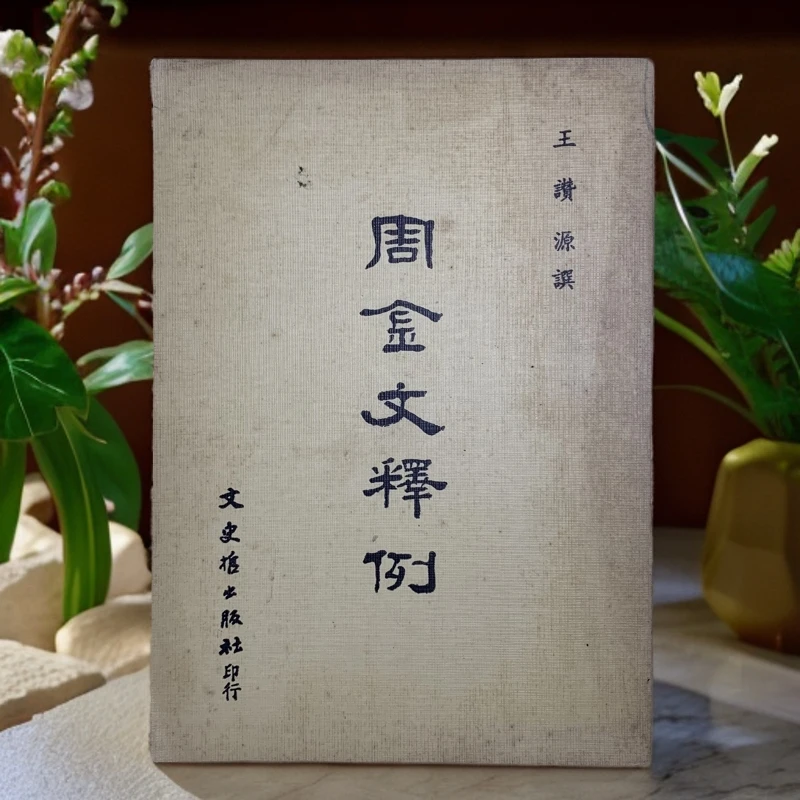 王讚源撰
周金文釋例
文史哲出版社印行